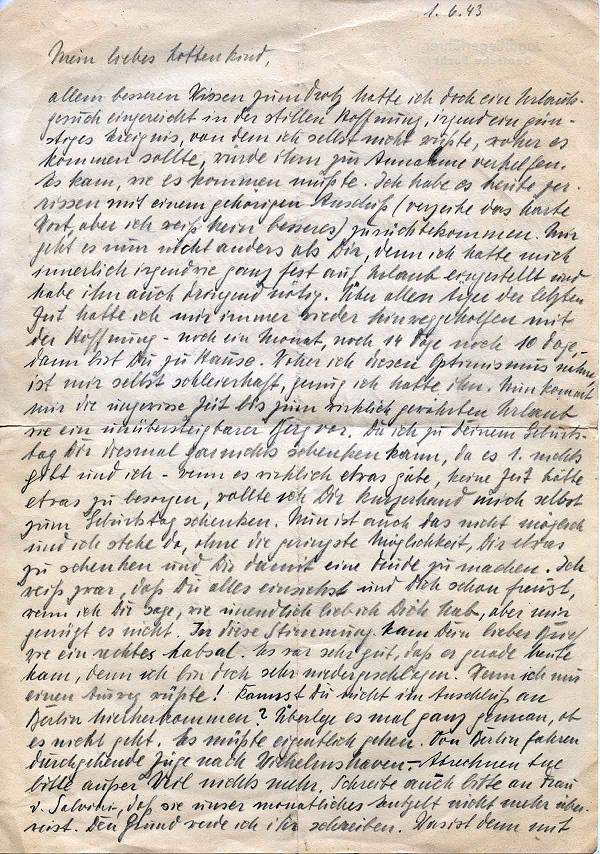 1.6.43
Mein liebes Lottenkind,
allem besseren Wissen zum Trotz hatte ich doch ein Urlaubs-
gesuch eingereicht in der stillen Hoffnung, irgend ein gün-
stiges Ereignis, von dem ich selbst nicht wüßte, woher es
kommen sollte, würde ihm zur Annahme verhelfen.
Es kam, wie es kommen müßte. Ich habe es heute zer-
rissen mit einem gehörigen Anschiß (verzeihe das harte
Wort, aber ich weiß kein besseres) zurückbekommen. Mir
geht es nun nicht anders als Dir, denn ich hatte mich
innerlich irgendwie ganz fest auf Urlaub eingestellt und
habe ihn auch dringend nötig. Über allen Ärger der letzten
Zeit hatte ich mir immer wieder hinweggeholfen mit
der Hoffnung - noch ein Monat, noch 14 Tage noch 10 Tage,
dann bist Du zu Hause. Woher ich diesen Optimismus nahm,
ist mir selbst schleierhaft, genug ich hatte ihn. Nun kommt
mir die ungewisse Zeit bis zum wirklich gewährten Urlaub
wie ein unübersteigbarer Berg vor. Da ich zu Deinem Geburts-
tag Dir diesmal garnichts schenken kann, da es 1. nichts
gibt und ich - wenn es wirklich etwas gäbe, keine Zeit hätte
etwas zu besorgen, wollte ich Dir kurzerhand mich selbst
zum Geburtstag schenken. Nun ist auch das nicht möglich
und ich stehe da, ohne die geringste Möglichkeit, Dir etwas
zu schenken und Dir damit eine Freude zu machen. Ich
weiß zwar, daß Du alles einsiehst und Dich schon freust,
wenn ich Dir sage, wie unendlich lieb ich Dich hab, aber mir
genügt es nicht. In diese Stimmung kam Dein lieber Brief
wie ein rechtes Labsal. Es war sehr gut, daß er gerade heute
kam, denn ich bin doch sehr niedergeschlagen. Wenn ich nur
einen Ausweg wüßte! Kannst Du nicht im Anschluß an
Berlin hierherkommen? Überlege es mal ganz genau, ob
es nicht geht. Es müßte eigentlich gehen. Von Berlin fahren
durchgehende Züge nach Wilhelmshaven - Abrechnen tue
bitte außer Weil nichts mehr, Schreibe auch bitte an Frau
v. daß sie unser monatliches nicht mehr über-
weist. Den Grund werde ich ihr schreiben. Was ist denn mit